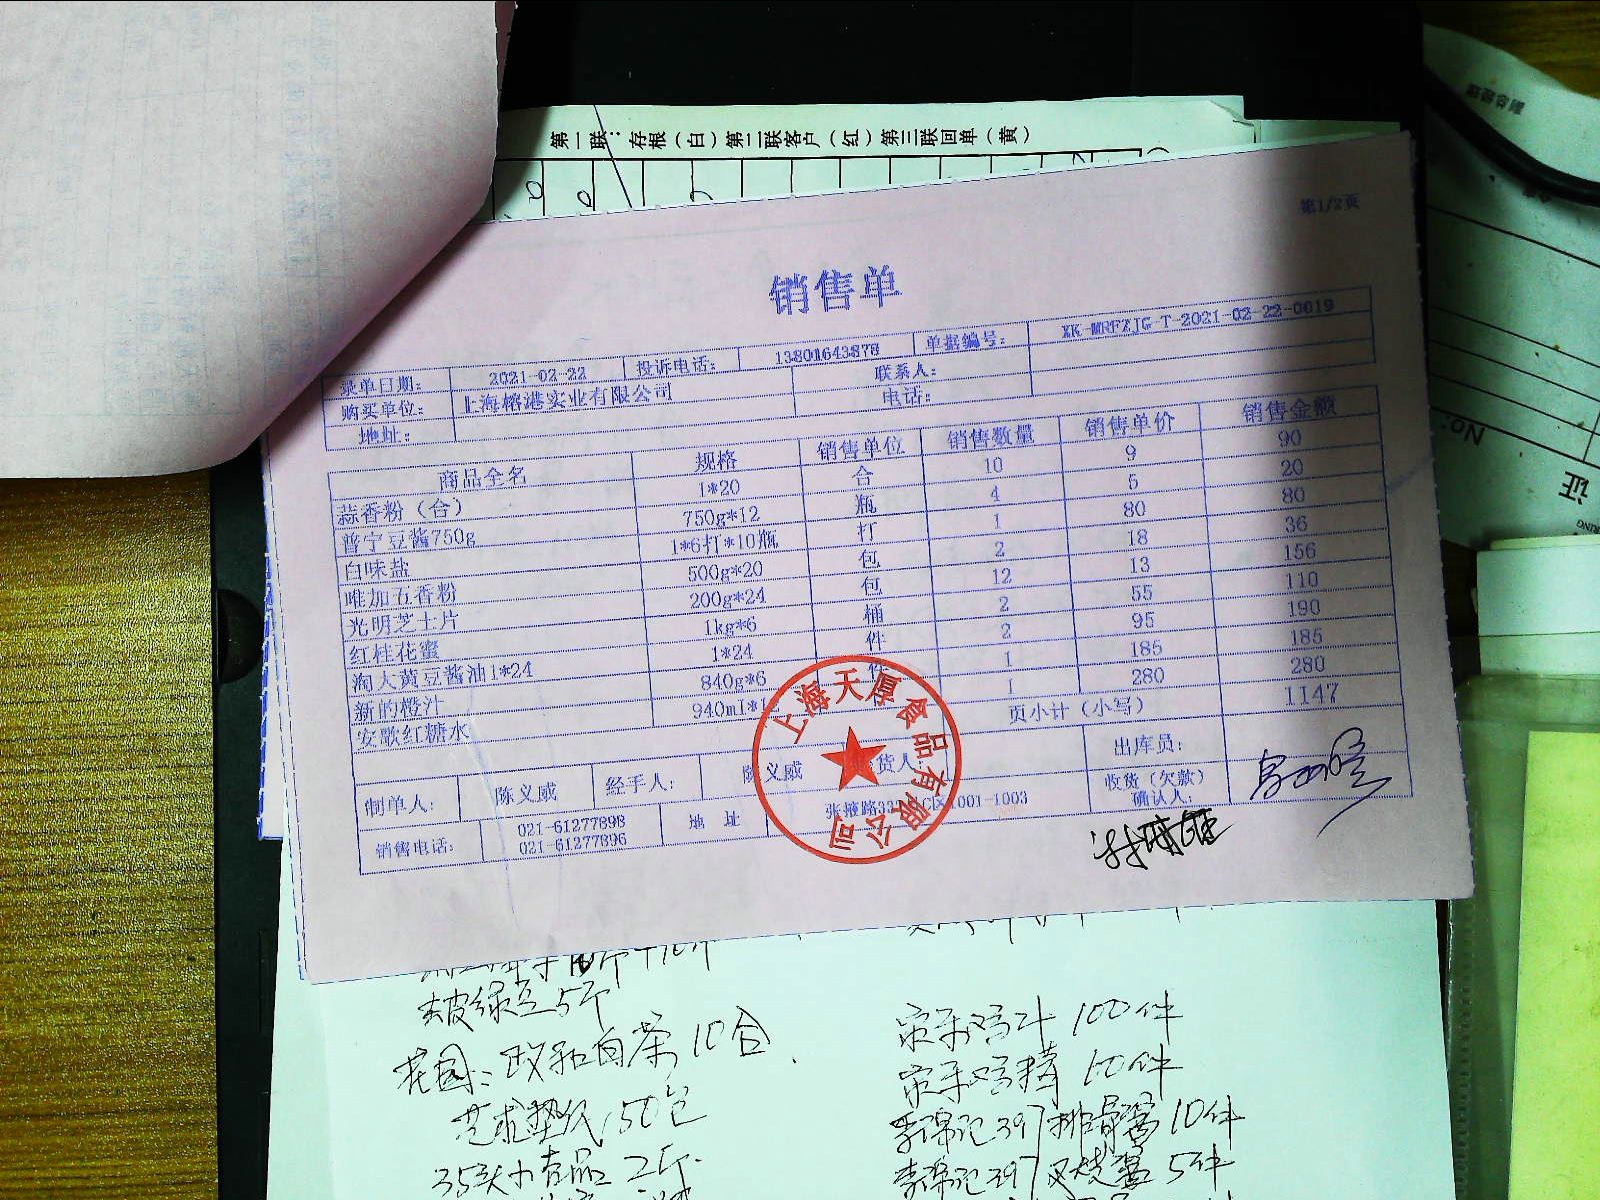 第一联：存根（白）第二联客户（红）第三联回单（黄）
第1/2页
销售单
录单日期： 2021-02-22 投诉电话： 13801643878 单据编号： XK-MRFZJG-T-2021-02-22-0019
购买单位： 上海榕港实业有限公司 联系人：
地址： 电话：
商品全名 规格 销售单位 销售数量 销售单价 销售金额
蒜香粉（合） 1*20 合 10 9 90
普宁豆酱750g 750g*12 瓶 4 5 20
白味盐 1*6打*10瓶 打 1 80 80
唯加五香粉 500g*20 包 2 18 36
光明芝士片 200g*24 包 12 13 156
红桂花蜜 1kg*6 桶 2 55 110
淘大黄豆酱油1*24 1*24 件 2 95 190
新的橙汁 840g*6 件 1 185 185
安歌红糖水 940ml*12 1 280 280
页小计（小写） 1147
制单人： 陈义威 经手人： 陈义威 货人： 出库员：
销售电话： 021-61277898 021-61277896 地 址 张掖路 1001-1003 收货（欠款）确认人：
上海天厚食品有限公司
去皮绿豆5斤
花园：政和白茶 10合
50包
2斤
100件
10件
李锦记397排骨酱10件
李锦记397叉烧酱5件
No:
证